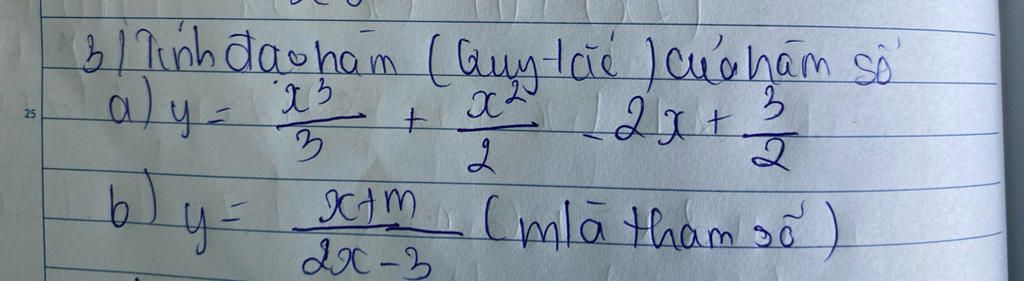 3) Tính đạo hàm (Quy tắc) của hàm số
25
a) y = x³/3 + x²/2 - 2x + 3/2
b) y = (x+m)/(2x-3) (m là tham số)